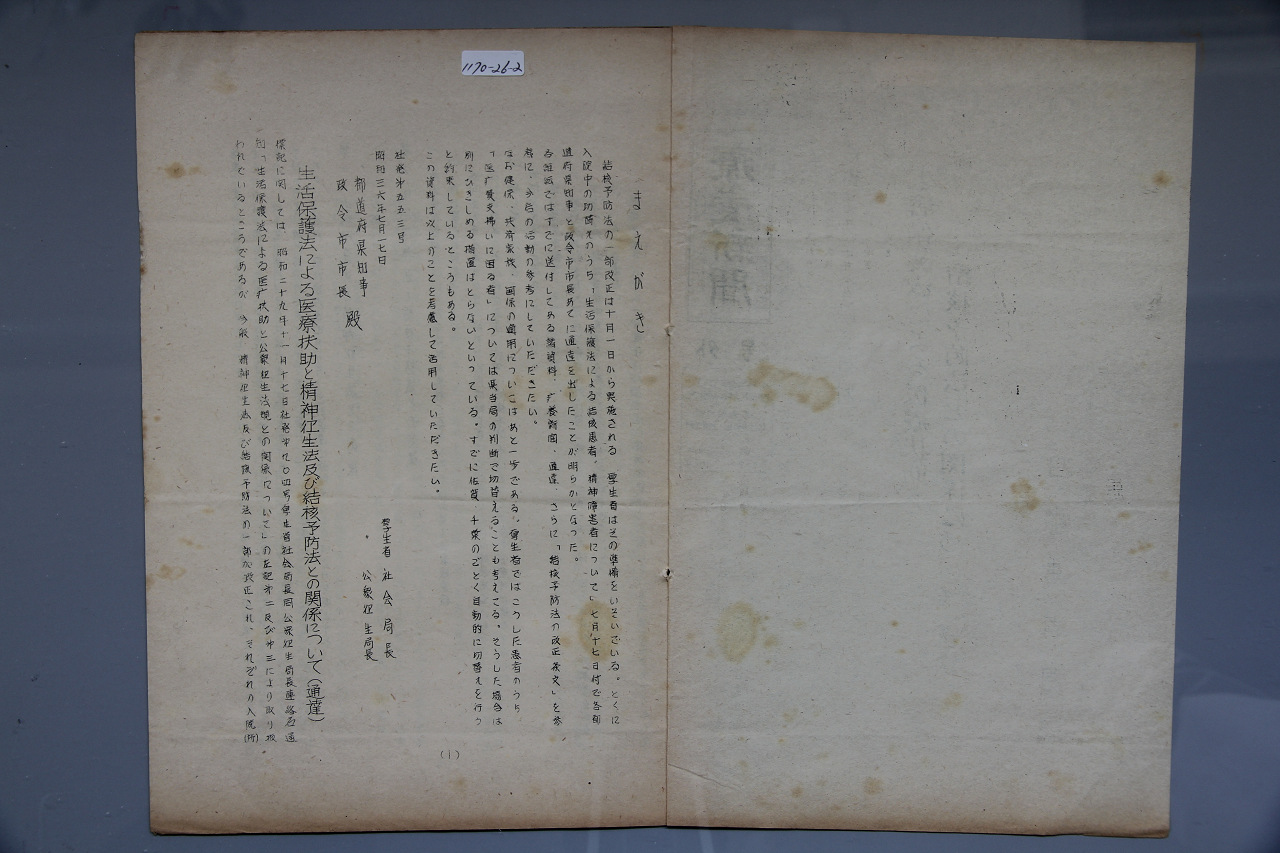 1170-26-2
まえがき
結核予防法の一部改正は十月一日から実施される 厚生省はその準備をいそいでいる。とくに
入院中の切替えのうち「生活保護法による結核患者、精神障害者について」七月十七日付で各都
道府県知事と政令市市長あてに通達を出したことが明らかとなった。
各組織ではすでに送付してある諸資料、療養新聞、通達、さらに「結核予防法の改正条文」を参
考に、今后の活動の参考にしていただきたい。
なお健保、共済家族、国保の適用についてはあと一歩である。厚生省ではこうした患者のうち
「医療費支払いに困る者」については県当局の判断で切替えることも考えてる。そうした場合は
別にひきしめる措置はとらないといっている。すでに佐賀、千葉のごとく自動的に切替えを行う
と約束しているところもある。
この資料は以上のことを考慮して活用していただきたい。
社発第五五三号
昭和三六年七月一七日
厚生省 社会局長
公衆衛生局長
都道府県知事
政令市市長 殿
生活保護法による医療扶助と精神衛生法及び結核予防法との関係について（通達）
標記に関しては、昭和二十九年十一月十七日社発第九〇四号厚生省社会局長同公衆衛生局長連名通
知「生活保護法による医療扶助と公衆衛生法規との関係について」の左記第二及び第三により取り扱
われているところであるが、今般、精神衛生法及び結核予防法の一部が改正され、それぞれの入院(所)
(1)